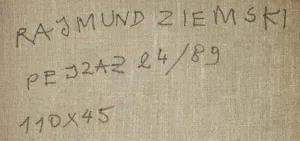 RAJMUND ZIEMSKI
PEJZAZ 24/89
110X45